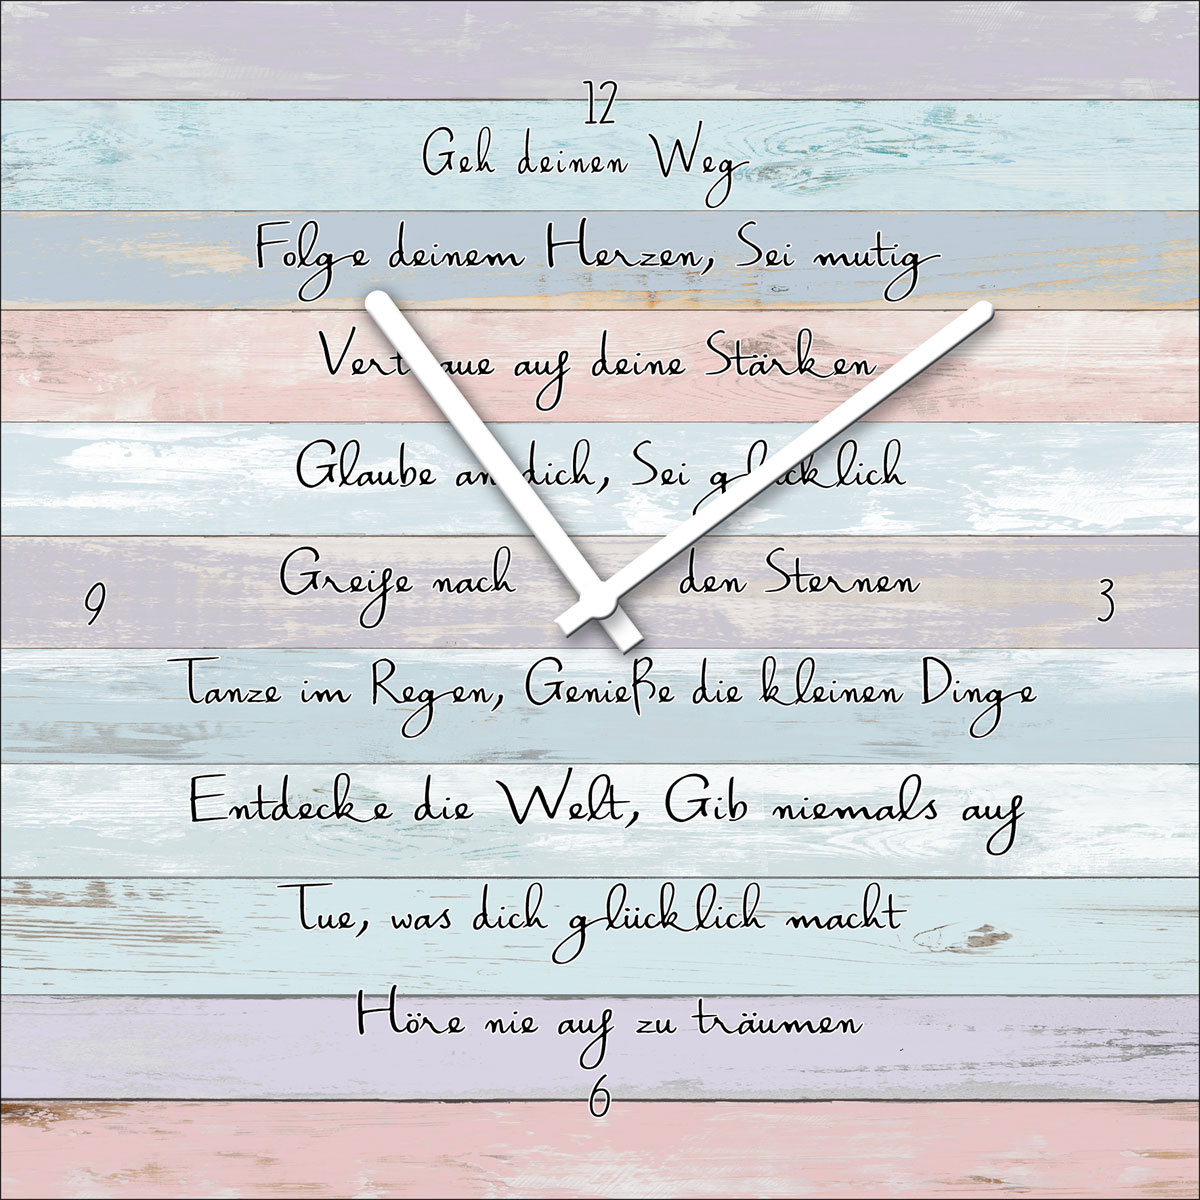 12
Geh deinen Weg
Folge deinem Herzen, Sei mutig
Vertraue auf deine Stärken
Glaube an dich, Sei glücklich
Greife nach den Sternen
9 3
Tanze im Regen, Genieße die kleinen Dinge
Entdecke die Welt, Gib niemals auf
Tue, was dich glücklich macht
Höre nie auf zu träumen
6